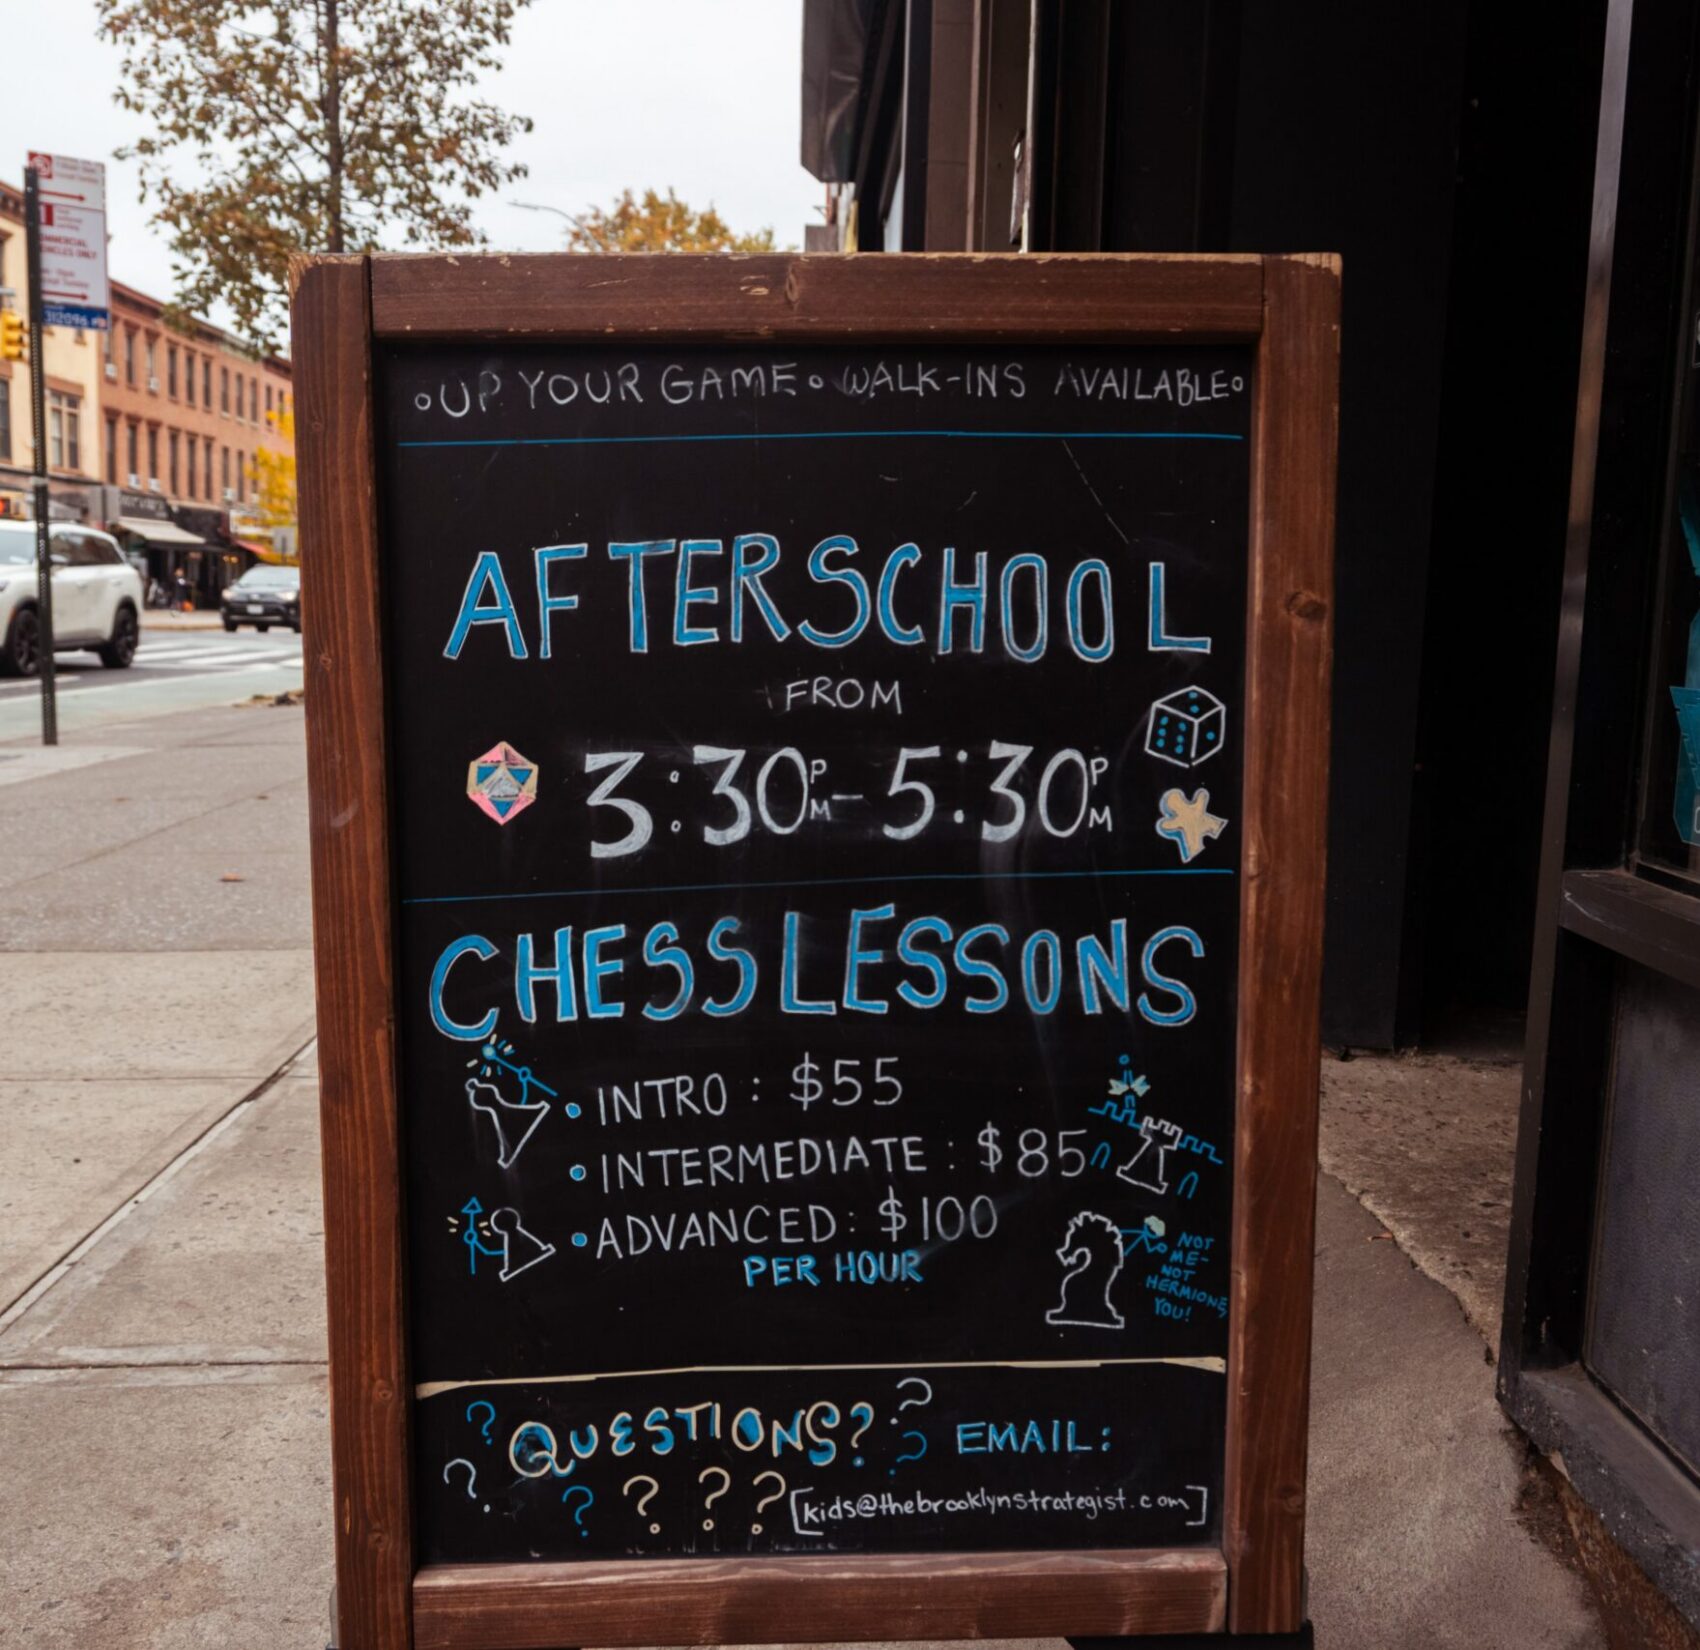 °UP YOUR GAME° WALK-INS AVAILABLE°
AFTERSCHOOL
FROM
3:30PM-5:30PM
CHESS LESSONS
• INTRO: $55
• INTERMEDIATE: $85
• ADVANCED: $100
PER HOUR
NOT
ME-
NOT
HERMIONE,
YOU!
? QUESTIONS? ? ? EMAIL:
? ? ? ? ? [kids@thebrooklynstrategist.com]
312096